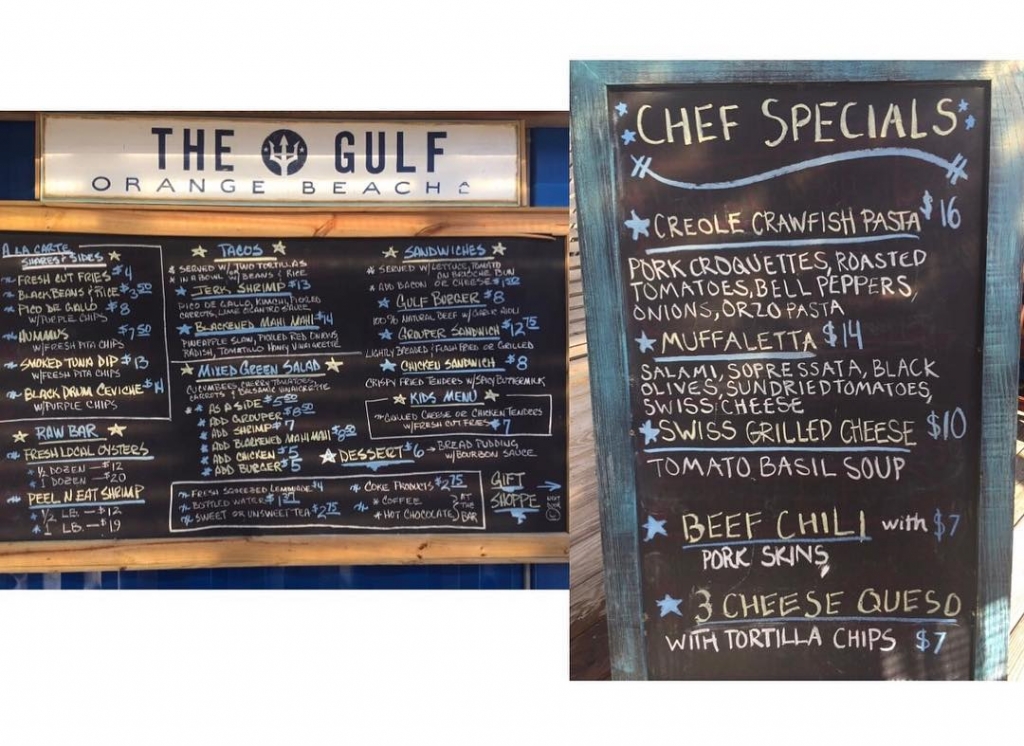 THE GULF
ORANGE BEACH
A LA CARTE
SHARES & SIDES
FRESH CUT FRIES $4
BLACK BEANS & RICE $3.50
PICO DE GALLO $8
W/PURPLE CHIPS
HUMMUS $7.50
W/FRESH PITA CHIPS
SMOKED TUNA DIP $13
W/FRESH PITA CHIPS
BLACK DRUM CEVICHE $14
W/PURPLE CHIPS
RAW BAR
FRESH LOCAL OYSTERS
½ DOZEN — $12
1 DOZEN — $20
PEEL N EAT SHRIMP
½ LB — $12
1 LB. — $19
TACOS
SERVED W/ TWO TORTILLAS
IN A BOWL W/BEANS & RICE
JERK SHRIMP $13
PICO DE GALLO, KIMCHI, PICKLED
CARROTS, LIME CILANTRO SAUCE
BLACKENED MAHI MAHI $14
PINEAPPLE SLAW, PICKLED RED ONIONS
RADISH, TOMATILLO HONEY VINAIGRETTE
MIXED GREEN SALAD
CUCUMBERS, CHERRY TOMATOES,
CARROTS & BALSAMIC VINAIGRETTE
AS A SIDE $5.50
ADD GROUPER $8.50
ADD SHRIMP $7
ADD BLACKENED MAHI MAHI $8.50
ADD CHICKEN $5
ADD BURGER $5
SANDWICHES
SERVED W/LETTUCE, TOMATO
ON BRIOCHE BUN
ADD BACON OR CHEESE
GULF BURGER $8
100% NATURAL BEEF W/GARLIC AIOLI
GROUPER SANDWICH $12.75
LIGHTLY BREADED / FLASH FRIED OR GRILLED
CHICKEN SANDWICH $8
CRISPY FRIED TENDERS W/SPICY BUTTERMILK
KIDS MENU
GRILLED CHEESE OR CHICKEN TENDERS
W/FRESH CUT FRIES $7
DESSERT $6 → BREAD PUDDING
W/BOURBON SAUCE
FRESH SQUEEZED LEMONADE $4
BOTTLED WATER
SWEET OR UNSWEET TEA $2.75
COKE PRODUCTS $2.75
COFFEE
HOT CHOCOLATE
AT THE BAR
GIFT
SHOPPE
CHEF SPECIALS
CREOLE CRAWFISH PASTA $16
PORK CROQUETTES, ROASTED
TOMATOES, BELL PEPPERS,
ONIONS, ORZO PASTA
MUFFALETTA $14
SALAMI, SOPRESSATA, BLACK
OLIVES, SUNDRIED TOMATOES,
SWISS CHEESE
SWISS GRILLED CHEESE $10
TOMATO BASIL SOUP
BEEF CHILI with $7
PORK SKINS
3 CHEESE QUESO
WITH TORTILLA CHIPS $7